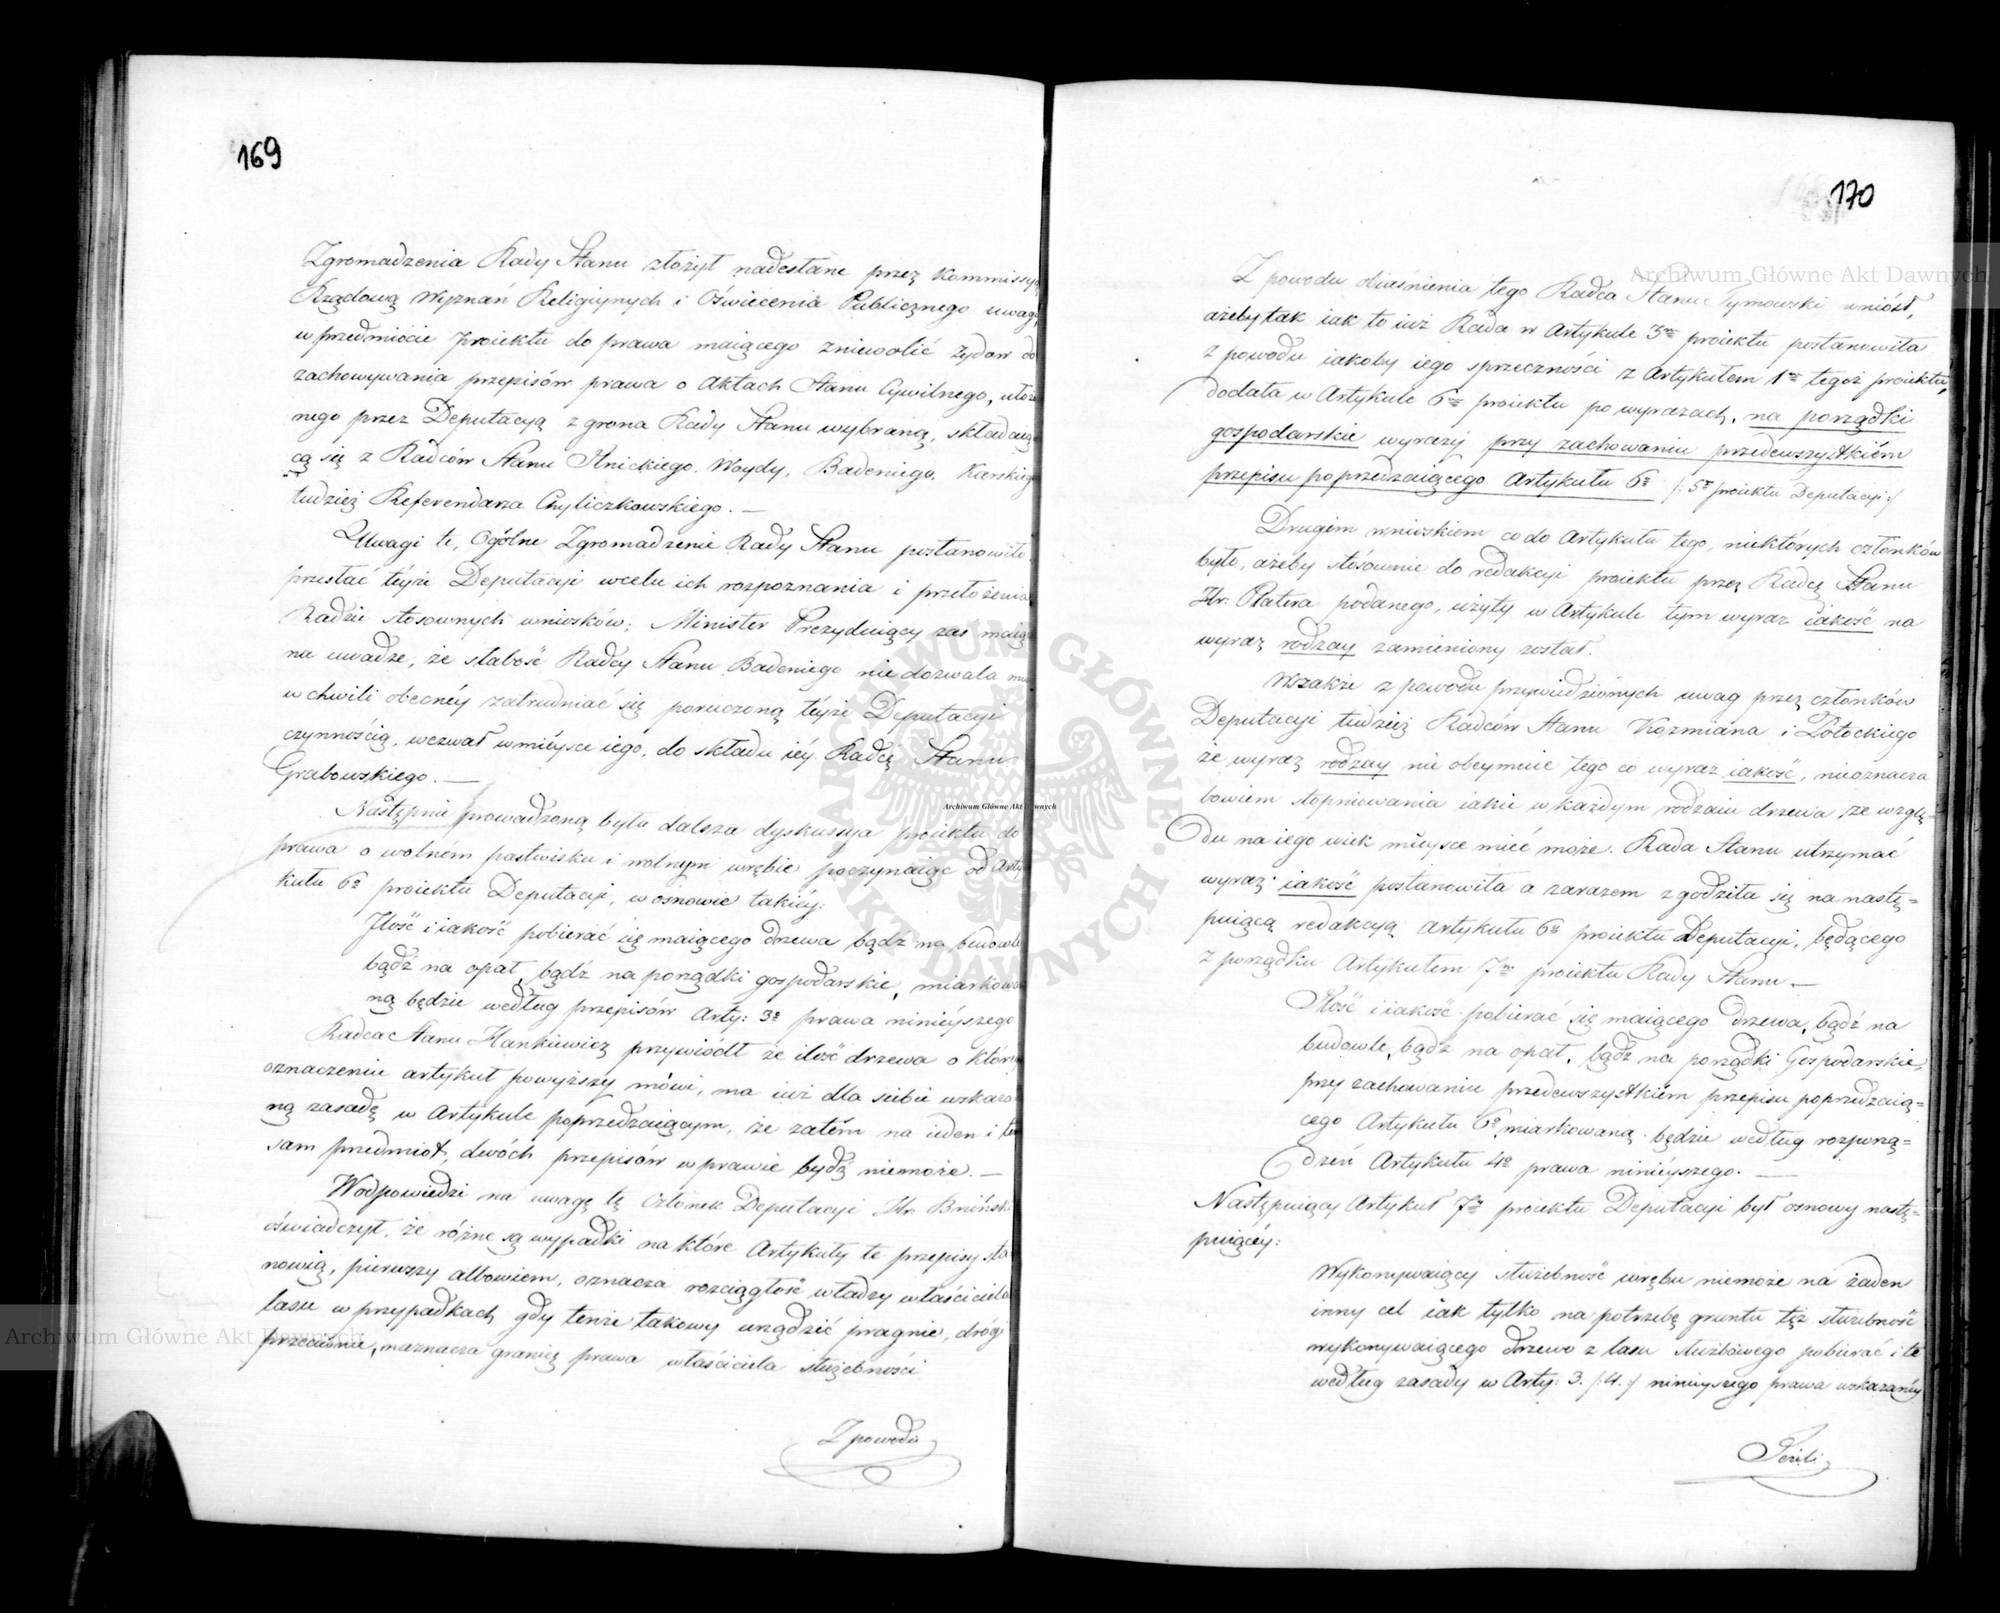 169
Zgromadzenia Rady Stanu złożył nadesłane przez Kommissyą
Rządową Wyznań Religiynych i Oświecenia Publicznego uwagi,
w przedmiocie proiektu do prawa maiącego zniewolić Żydów do
zachowywania przepisów prawa o Aktach Stanu Cywilnego, ułożo
nego przez Deputacyą z grona Rady Stanu wybraną, składaią
cą się z Radców Stanu Jłnickiego, Woydy, Badeniego, Karskiego
tudzież Referendarza Chyliczkowskiego. —
Uwagi te, Ogólne Zgromadzenie Rady Stanu postanowiło
przesłać téyże Deputacyi w celu ich rozpoznania i przełożenia
Radzie stosownych wniosków; Minister Prezyduiący zaś maiąc
na uwadze, że słabość Radcy Stanu Badeniego nie dozwala mu
w chwili obecnéy zatrudniać się poruczoną téyże Deputacyi
czynnością, wezwał w mieysce iego, do składu iéy Radcę Stanu
Grabowskiego. —
Następnie prowadzoną była dalsza dyskussya proiektu do
prawa o wolném pastwisku i wolnym wrębie poczynaiąc od Arty
kułu 6º proiektu Deputacyi, w osnowie takiéy:
Jlość i iakość pobierać się maiącego drzewa bądź na budowle
bądź na opał, bądź na porządki gospodarskie, miarkowa
ną będzie według przepisów Arty: 3º prawa ninieyszego
Radca Stanu Hankiewicz przywiódł że ilość drzewa o któréy
oznaczeniu artykuł powyższy mówi, ma iuż dla siebie wskaza
ną zasadę w Artykule poprzedzaiącym, że zatém na ieden i ten
sam przedmiot, dwóch przepisów w prawie bydź niemoże. —
W odpowiedzi na uwagę tę Członek Deputacyi Hr. Bniński
oświadczył, że różne są wypadki na które Artykuły te przepisy sta
nowią, pierwszy albowiem, oznacza rozciągłość władzy właściciela
lasu w przypadkach gdy tenże takowy urządzić pragnie, drugi
przeciwnie, naznacza granicę prawa właściciela służebności
Z powodu
170
Z powodu obiaśnienia tego Radca Stanu Tymowski wniósł,
ażeby tak iak to iuż Rada w Artykule 3m proiektu postanowiła
z powodu iakoby iego sprzeczności z Artykułem 1m tegoż proiektu,
dodała w Artykule 6m proiektu po wyrazach, na porządki
gospodarskie wyrazy przy zachowaniu przedewszystkiém
przepisu poprzedzaiącego Artykułu 6º /: 5º proiektu Deputacyi :/
Drugim wnioskiem co do Artykułu tego, niektórych członków
było, ażeby stósownie do redakcyi proiektu przez Radcę Stanu
Hr: Platera podanego, użyty w Artykule tym wyraz iakość na
wyraz rodzay zamieniony został.
Wszakże z powodu przywiedzionych uwag przez członków
Deputacyi tudzież Radców Stanu Kozmiana i Potockiego
że wyraz rodzay nie obeymuie tego co wyraz iakość, nieoznacza
bowiem stopniowania iakie w każdym rodzaiu drzewa, ze wzglę-
du na iego wiek mieysce mieć może. Rada Stanu utrzymać
wyraz iakość postanowiła a zarazem zgodziła się na nastę-
puiącą redakcyą artykułu 6º proiektu Deputacyi, będącego
z porządku Artykułem 7m proiektu Rady Stanu —
Ilość i iakość pobierać się maiącego drzewa, bądź na
budowle, bądź na opał, bądź na porządki Gospodarskie,
przy zachowaniu przedewszystkiém przepisu poprzedzaią-
cego Artykułu 6º miarkowaną będzie według rozporzą-
dzeń Artykułu 4º prawa ninieyszego. —
Następuiący Artykuł 7y proiektu Deputacyi był osnowy nastę-
puiącéy:
Wykonywaiący służebność wrębu niemoże na żaden
inny cel iak tylko na potrzebę gruntu tęż służebność
wykonywaiącego drzewo z lasu służbowego pobierać i to
według zasady w Arty: 3. /: 4. :/ ninieyszego prawa wskazanéy
Jeżeli
Archiwum Główne Akt Dawnych
Archiwum Główne Akt Dawnych
Archiwum Główne Akt Dawnych
ARCHIWUM GŁÓWNE AKT DAWNYCH